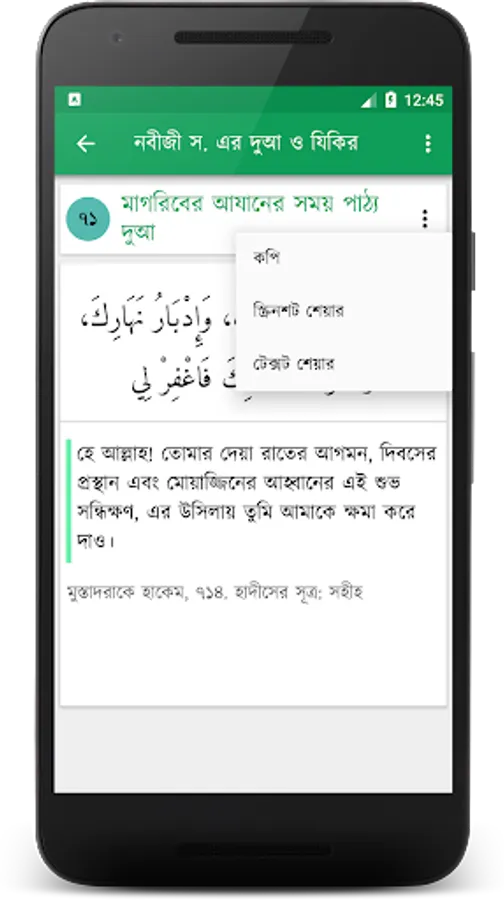 12:45
নবীজী স. এর দুআ ও যিকির
৭১
মাগরিবের আযানের সময় পাঠ্য
দুআ
কপি
স্ক্রিনশট শেয়ার
টেক্সট শেয়ার
وَإِدْبَارُ نَهَارِكَ،
فَاغْفِرْ لِي
হে আল্লাহ! তোমার দেয়া রাতের আগমন, দিবসের
প্রস্থান এবং মোয়াজ্জিনের আহ্বানের এই শুভ
সন্ধিক্ষণ, এর উসিলায় তুমি আমাকে ক্ষমা করে
দাও।
মুস্তাদরাকে হাকেম, ৭১৪. হাদীসের সূত্র: সহীহ